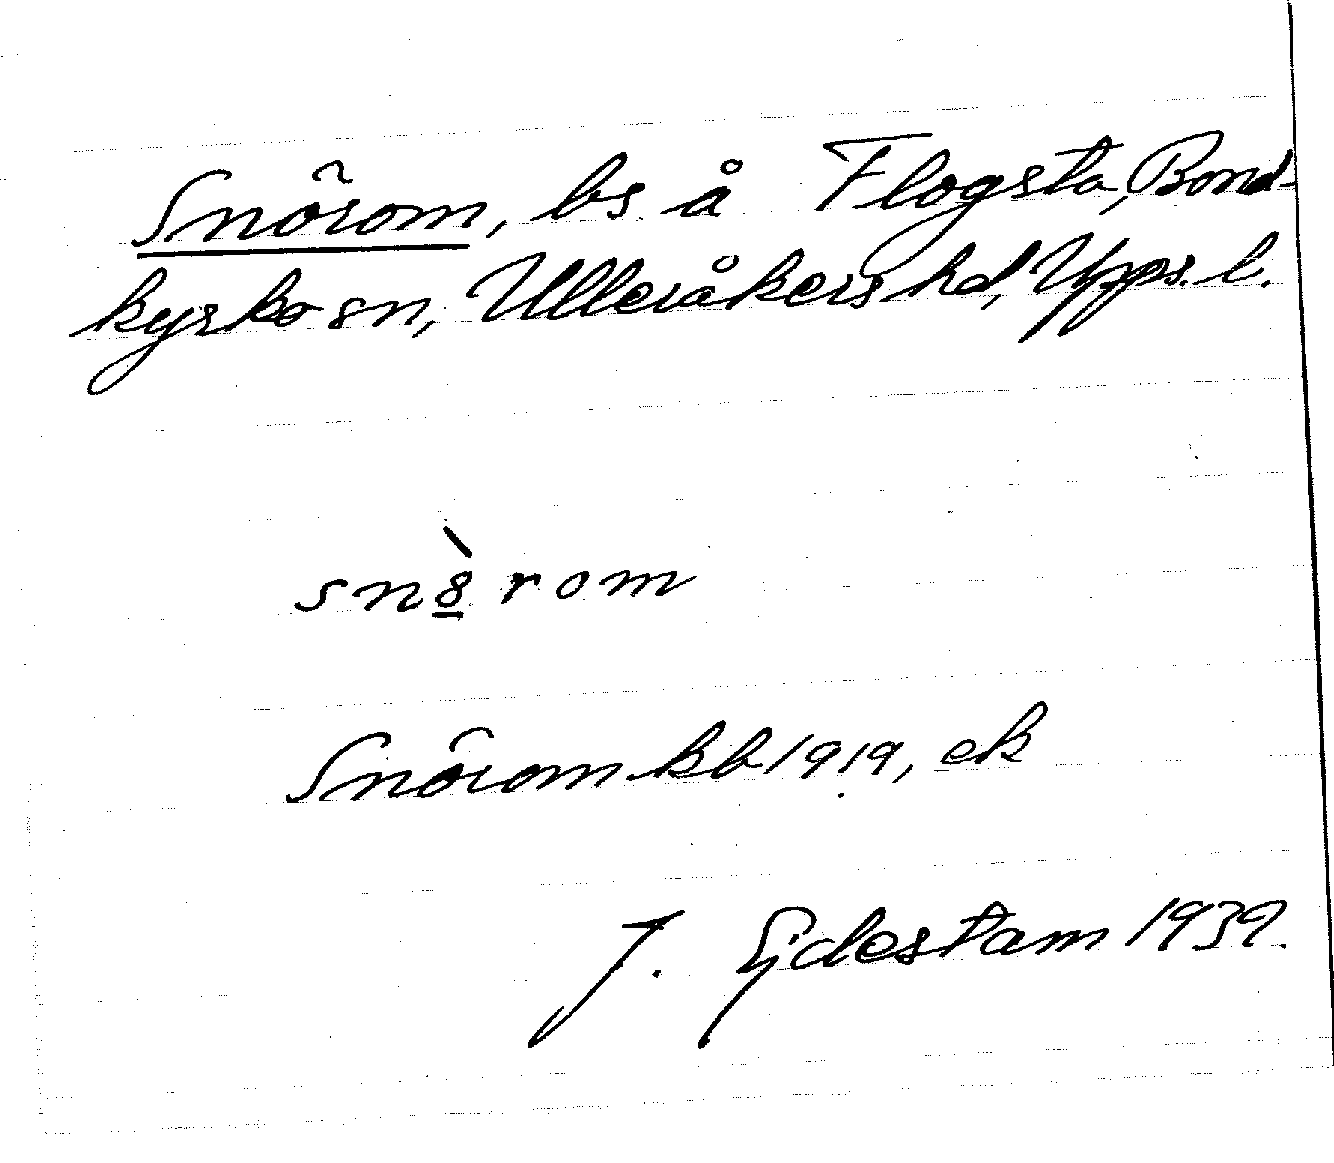 Snörom, bs å Flogsta, Bond-
kyrko sn, Ulleråkers hd, Upps. l.
snȣ̀rom
Snörom kb 1919, ek
J. Ejdestam 1939.